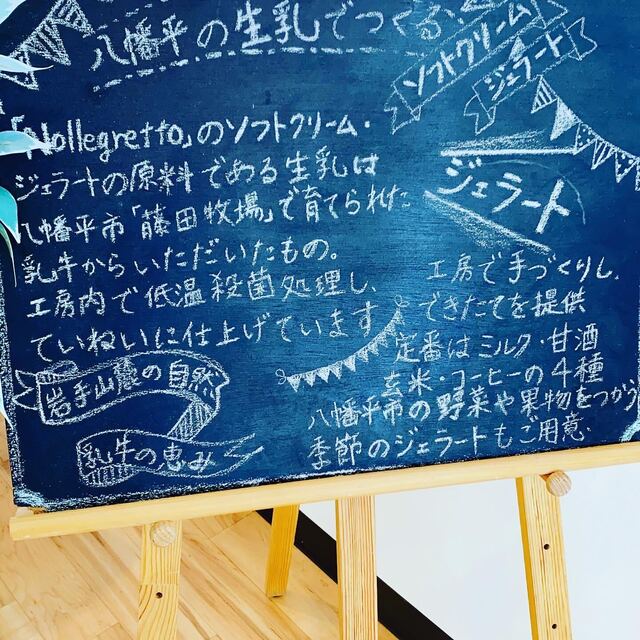 八幡平の生乳でつくる
ソフトクリーム
ジェラート
「Nollegretto」のソフトクリーム・
ジェラートの原料である生乳は
八幡平市「藤田牧場」で育てられた
乳牛からいただいたもの。
工房内で低温殺菌処理し、
ていねいに仕上げています
岩手山麓の自然
乳牛の恵み
ジェラート
工房で手づくりし、
できたてを提供
定番はミルク・甘酒
玄米・コーヒーの4種
八幡平市の野菜や果物をつかう
季節のジェラートもご用意